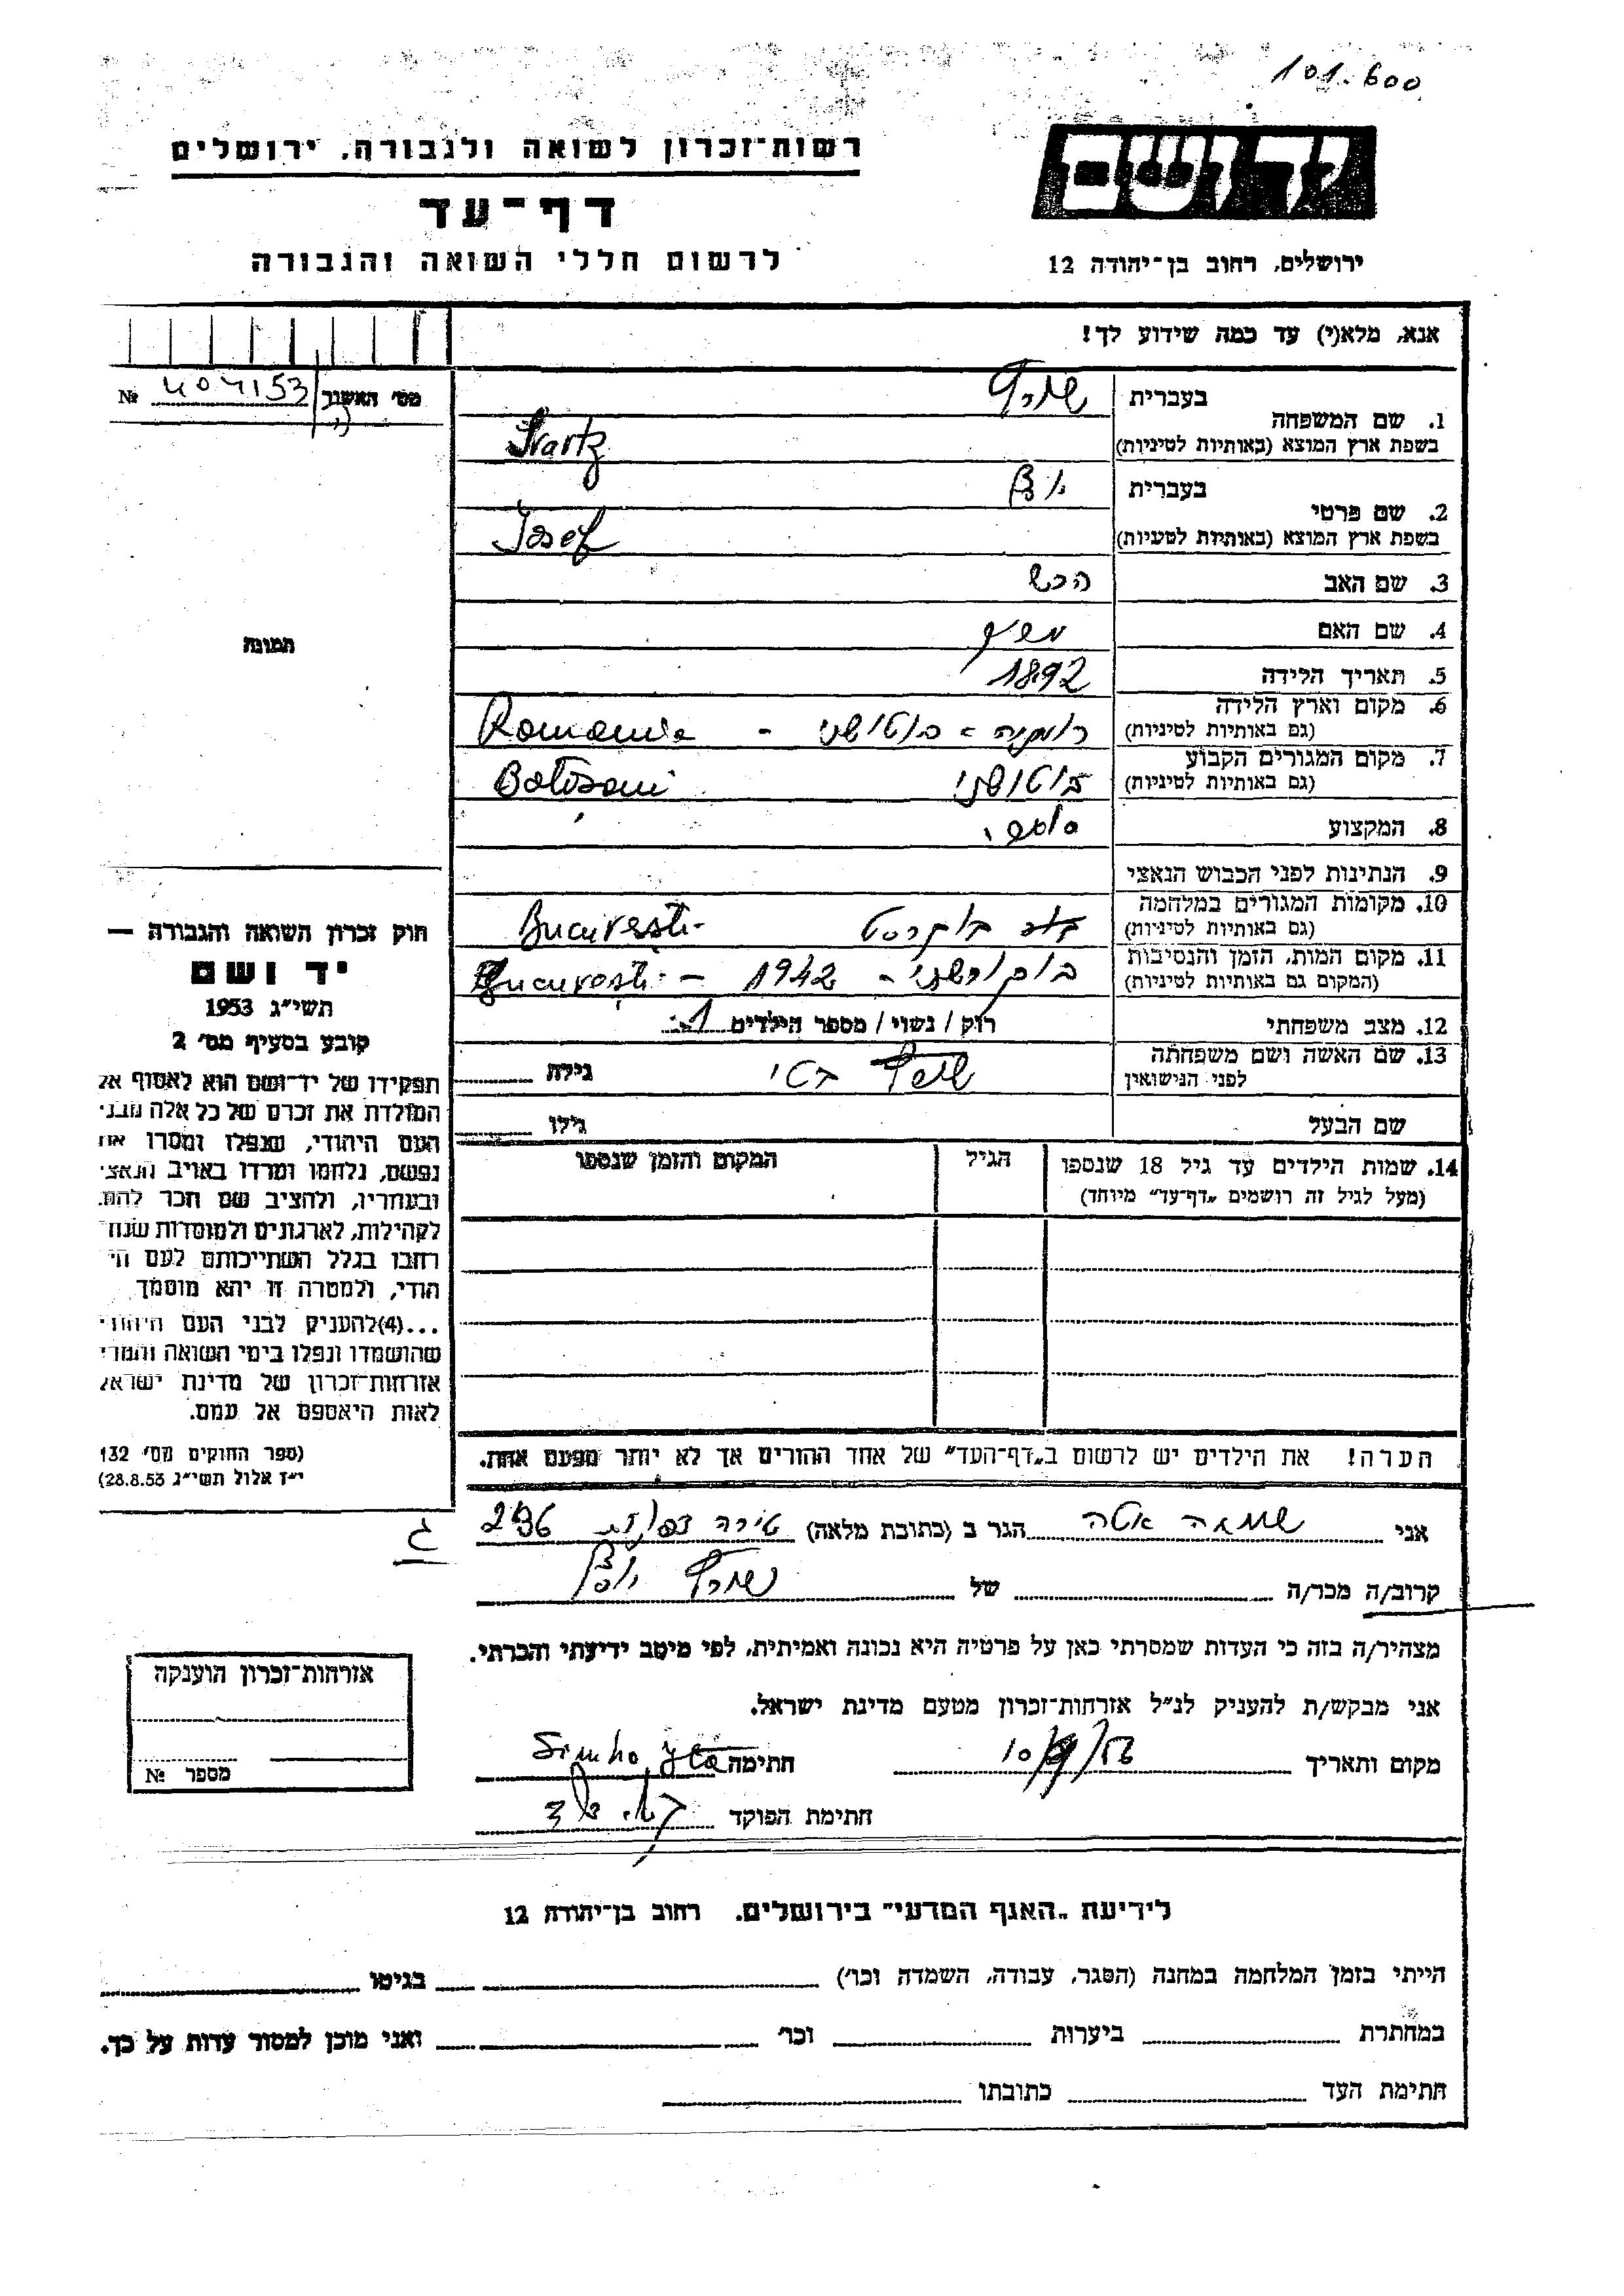 101.600
רשות־זכרון לשואה ולגבורה, ירושלים
דף־עד
לרשום חללי השואה והגבורה
ירושלים, רחוב בן־יהודה 12
אנא, מלא(י) עד כמה שידוע לך!
מס׳ האשור № 407153
בעברית
1. שם המשפחה
בשפת ארץ המוצא (באותיות לטיניות)
בעברית
2. שם פרטי
בשפת ארץ המוצא (באותיות לטיניות) Josef
3. שם האב
4. שם האם
5. תאריך הלידה 1892
6. מקום וארץ הלידה
(גם באותיות לטיניות) רומניה - בוטושני - Romania
7. מקום המגורים הקבוע
(גם באותיות לטיניות) בוטושני Botosani
8. המקצוע
9. הנתינות לפני הכבוש הנאצי
10. מקומות המגורים במלחמה
(גם באותיות לטיניות) Bucuresti
11. מקום המות, הזמן והנסיבות
(המקום גם באותיות לטיניות) 1942 - Bucuresti
12. מצב משפחתי רוק / נשוי / מספר הילדים 1
13. שם האשה ושם משפחתה
לפני הנישואין גילה
שם הבעל גילו
14. שמות הילדים עד גיל 18 שנספו הגיל המקום והזמן שנספו
(מעל לגיל זה רושמים „דף־עד״ מיוחד)
הערה! את הילדים יש לרשום ב„דף־העד״ של אחד ההורים אך לא יותר מפעם אחת.
תמונה
חוק זכרון השואה והגבורה —
יד ושם
תשי״ג 1953
קובע בסעיף מס׳ 2
תפקידו של יד־ושם הוא לאסוף אל
המולדת את זכרם של כל אלה מבני
העם היהודי, שנפלו ומסרו את
נפשם, נלחמו ומרדו באויב הנאצי
ובעוזריו, ולהציב שם וזכר להם,
לקהילות, לארגונים ולמוסדות שנח־
רבו בגלל השתייכותם לעם הי־
הודי, ולמטרה זו יהא מוסמך
...(4) להעניק לבני העם היהודי
שהושמדו ונפלו בימי השואה והמרי
אזרחות־זכרון של מדינת ישראל
לאות היאספם אל עמם.
(ספר החוקים מס׳ 132
י״ז אלול תשי״ג 28.8.53)
אני שמחה אטה הגר ב (כתובת מלאה) טירה 236
קרוב/ה מכר/ה של
מצהיר/ה בזה כי העדות שמסרתי כאן על פרטיה היא נכונה ואמיתית, לפי מיטב ידיעתי והכרתי.
אני מבקש/ת להעניק לנ״ל אזרחות־זכרון מטעם מדינת ישראל.
מקום ותאריך חתימה
חתימת הפוקד
אזרחות־זכרון הוענקה
מספר №
לידיעת „האגף המדעי״ בירושלים. רחוב בן־יהודה 12
הייתי בזמן המלחמה במחנה (הסגר, עבודה, השמדה וכו׳) בגיטו
במחתרת ביערות וכו׳ ואני מוכן למסור עדות על כך.
חתימת העד כתובתו